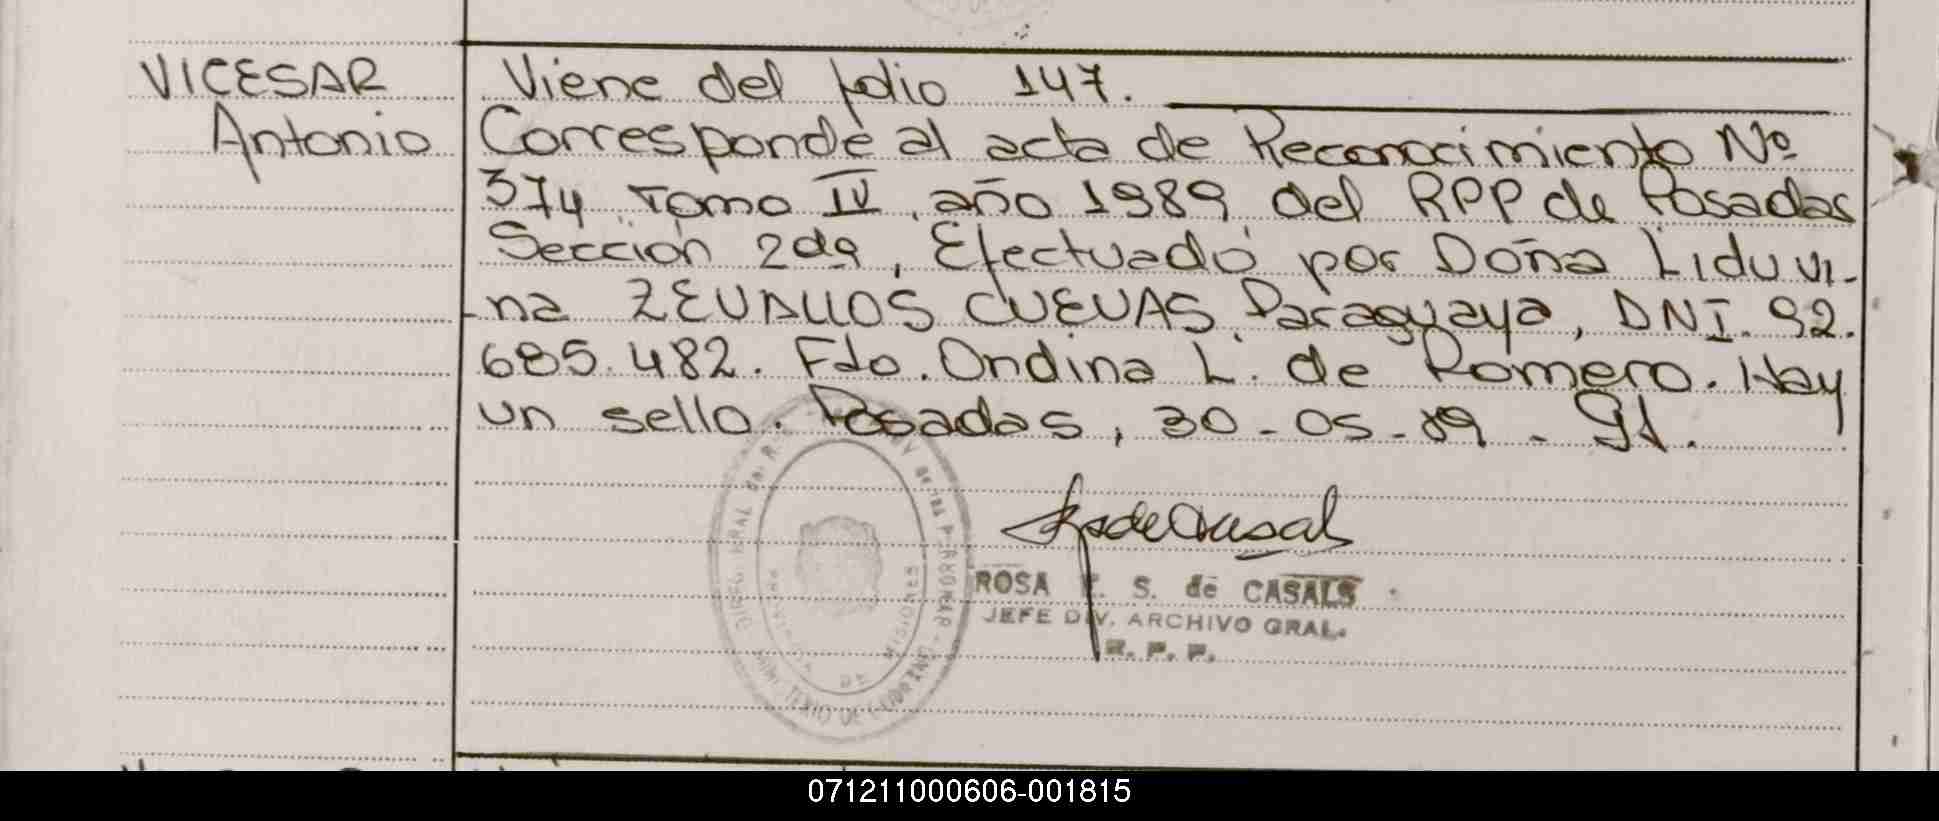 VICESAR
Antonio
Viene del folio 147.
Corresponde al acta de Reconocimiento Nº
374 Tomo IV, año 1989 del RPP de Posadas
Sección 2da, Efectuado por Doña Liduvi-
na ZEVALLOS CUEVAS, Paraguaya, DNI. 92.
685.482. Fdo. Ondina L. de Romero. Hay
un sello. Posadas, 30-05-89-
ROSA E. S. de CASALS
JEFE DIV. ARCHIVO GRAL.
R. P. P.
DE MISIONES
071211000606-001815